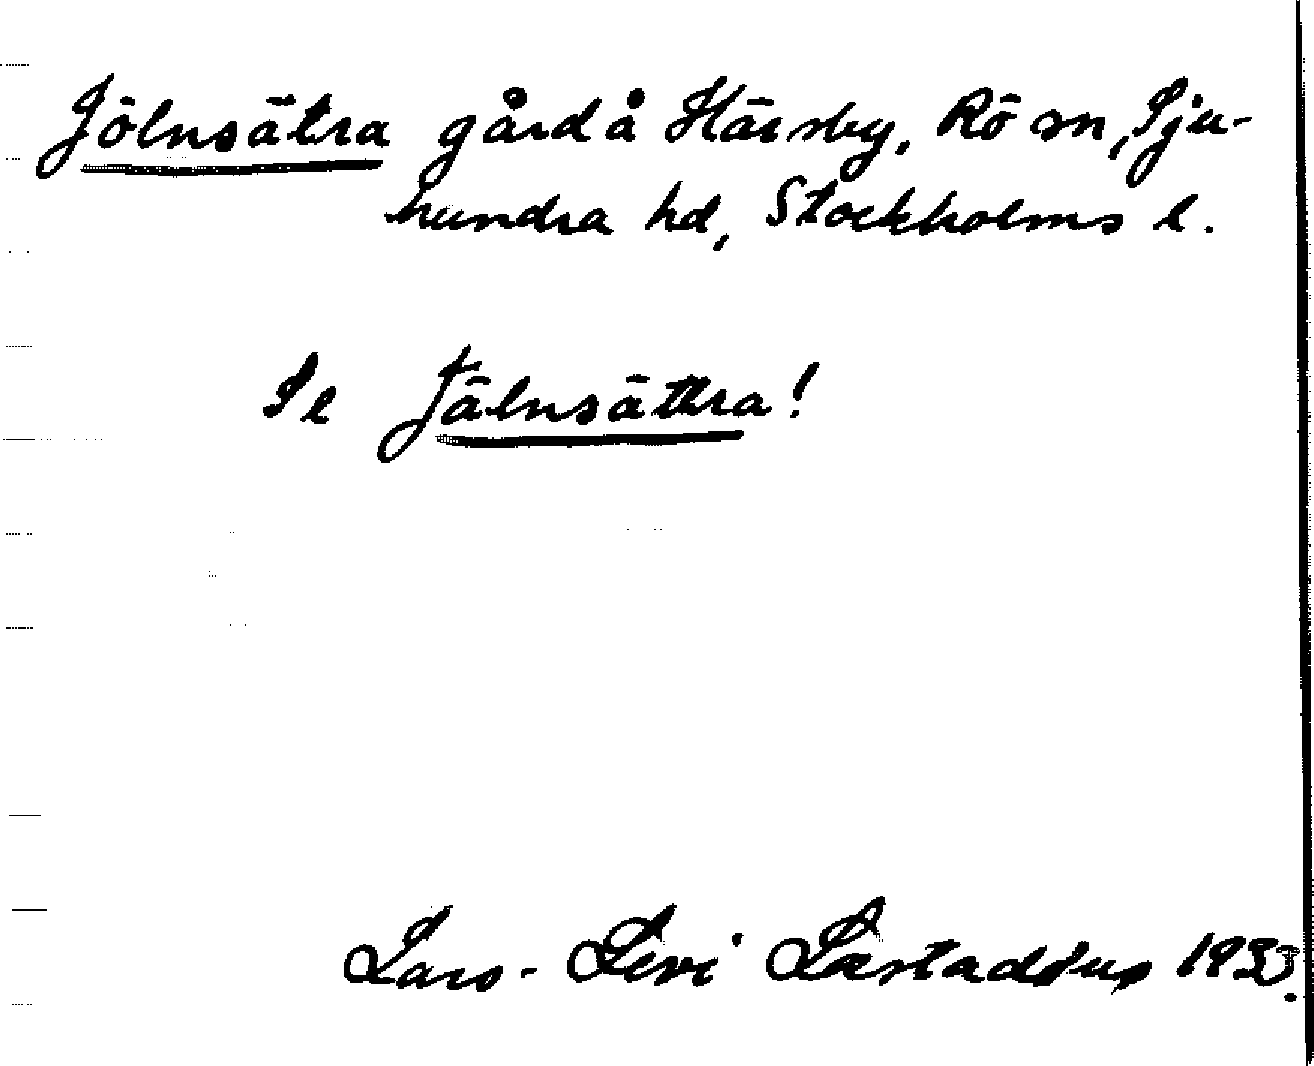 Jölnsätra gård å Härsby, Rö sn, Sju-
hundra hd, Stockholms l.
Se Jälnsättra!
Lars-Levi Læstadius